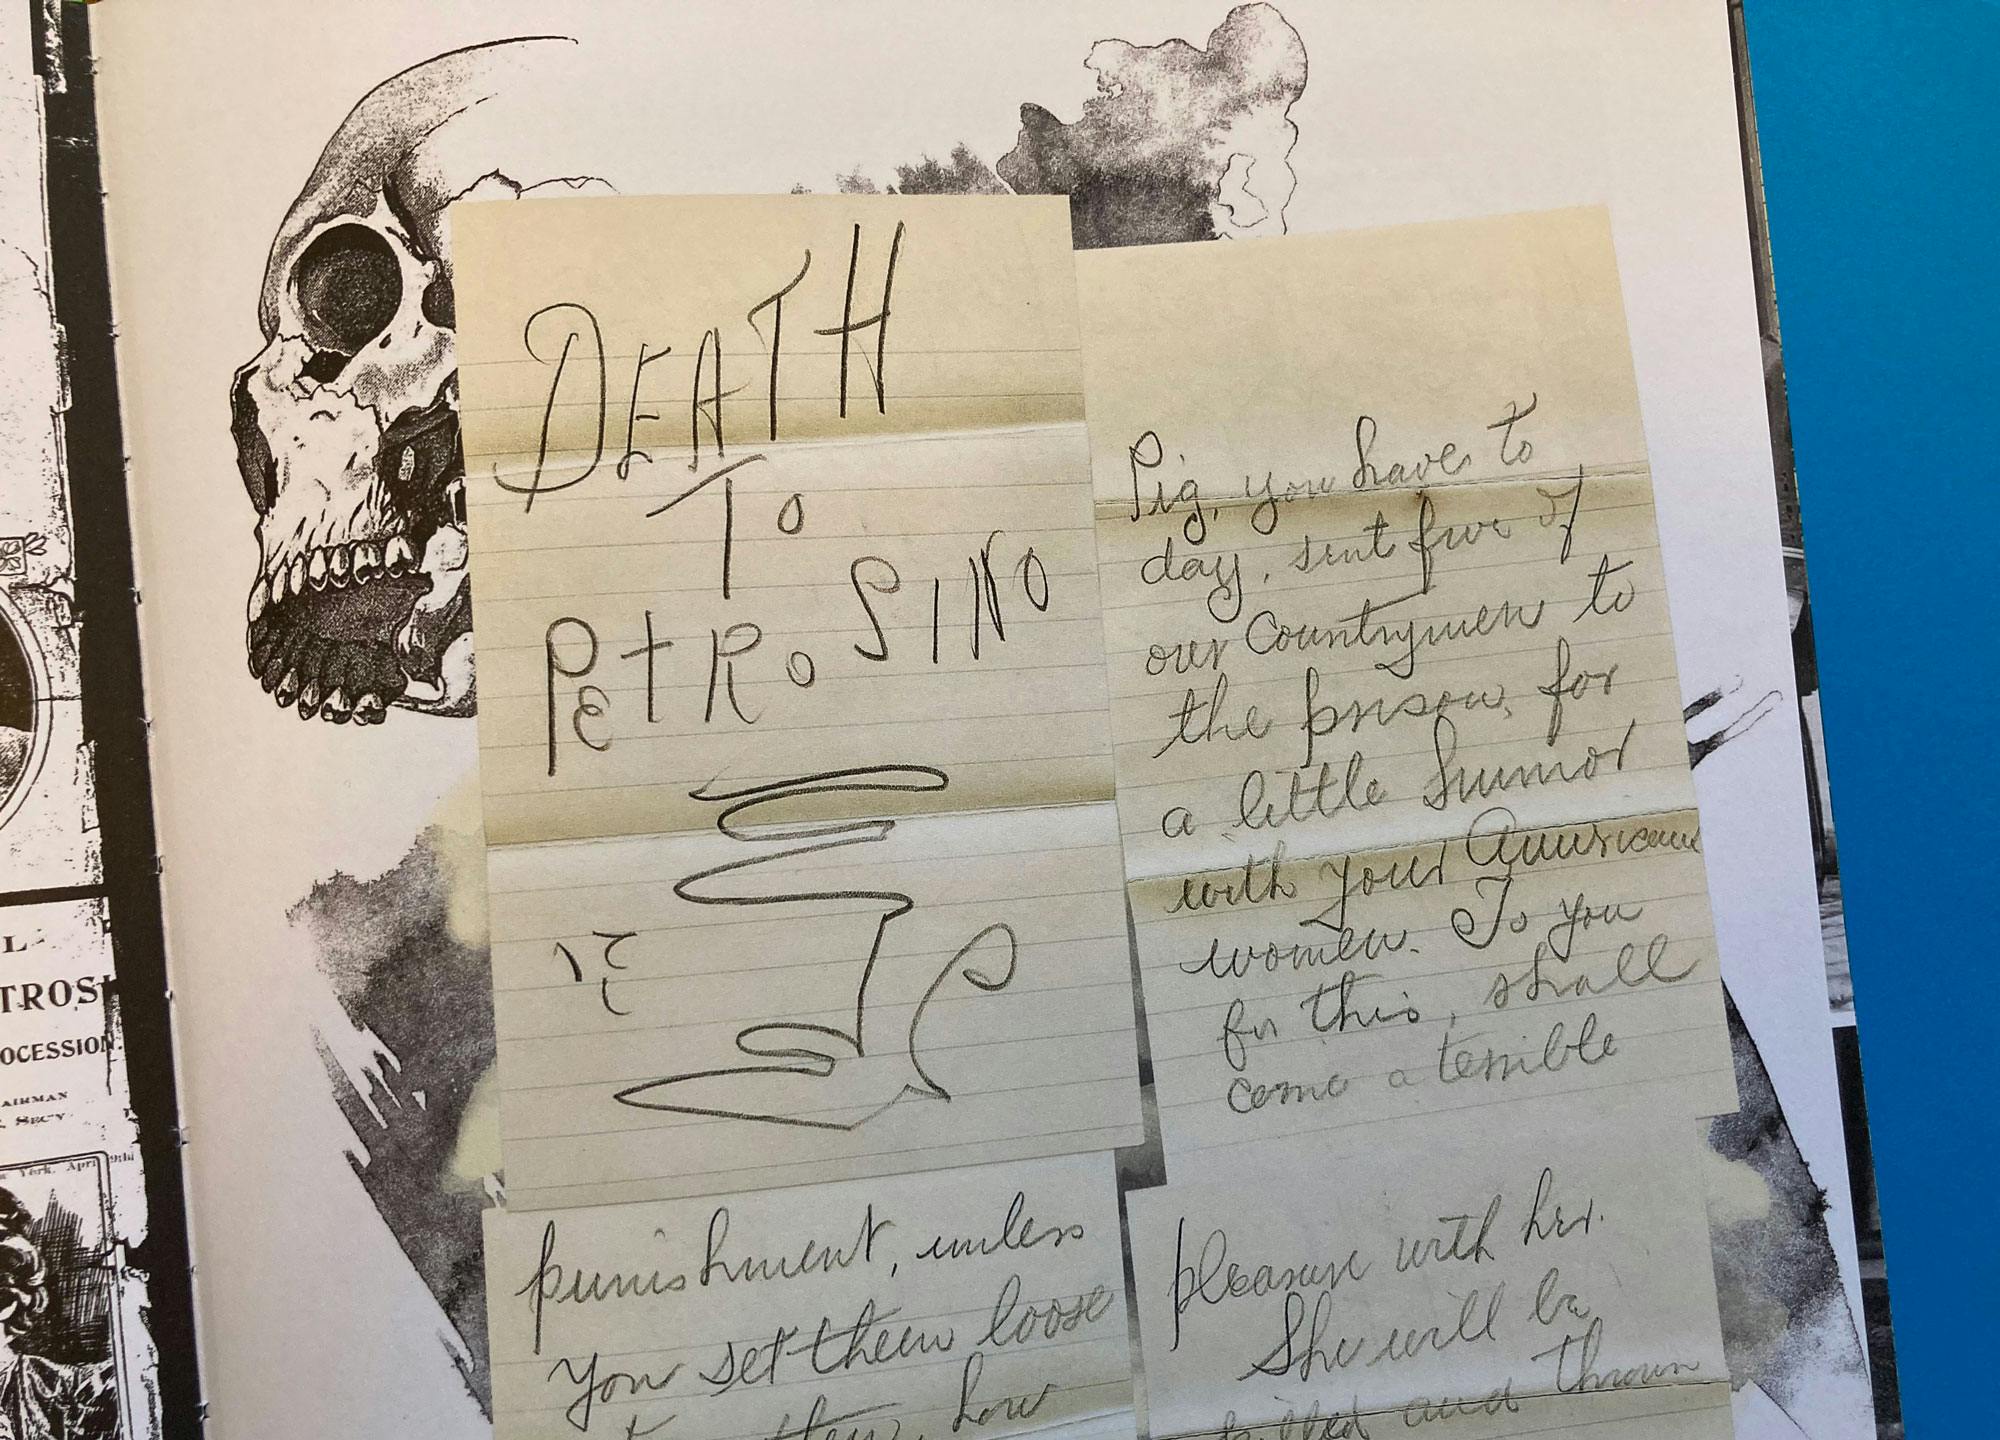 DEATH
To
PEtRoSINO
Pig, you have to
day, sent five of
our Countrymen to
the prison, for
a little humor
with your American
women. To you
for this, shall
come a terrible
punishment, unless
you set them loose
them, how
pleasure with her.
She will be
killed and thrown
L
TROSI
OCESSION.
AIRMAN
SECY
York, April 9th